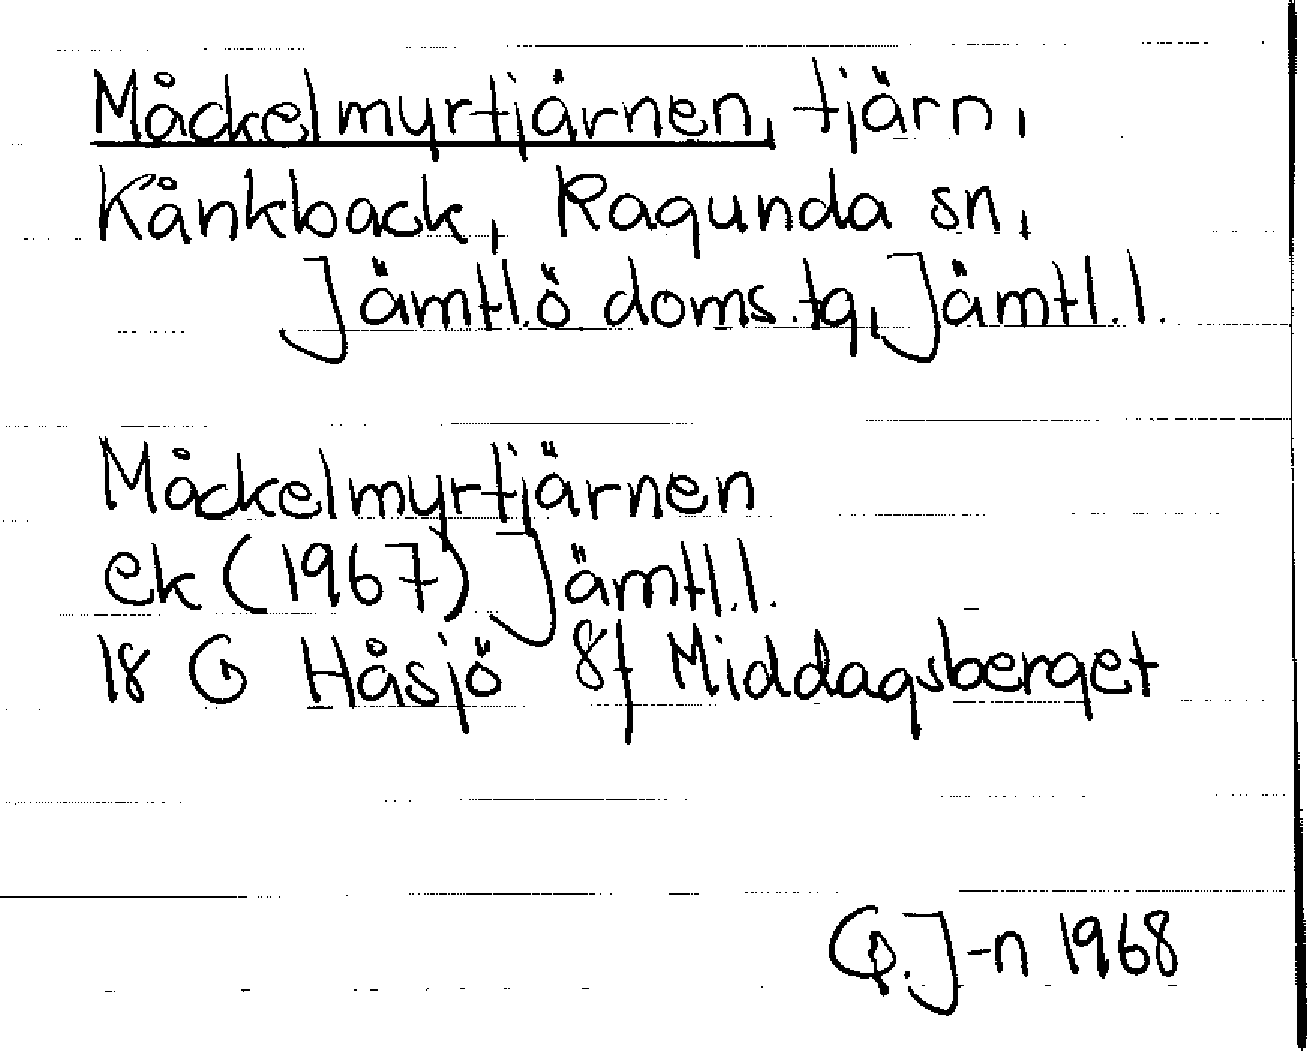 Måckelmyrtjärnen, tjärn,
Kånkback, Ragunda sn,
Jämtl.ö doms.tg, Jämtl.l.
Måckelmyrtjärnen
ek (1967) Jämtl.l.
18 G Håsjö 8f Middagsberget
G.J-n 1968